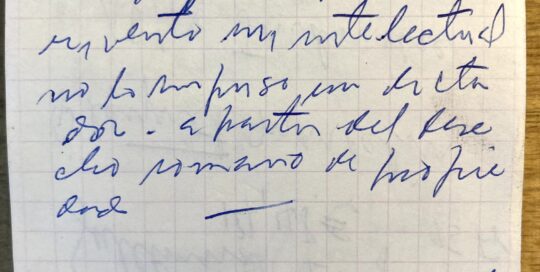 invento un intelectual
no lo impuso un dicta
dor. a partir del dere
cho romano de propie
dad —